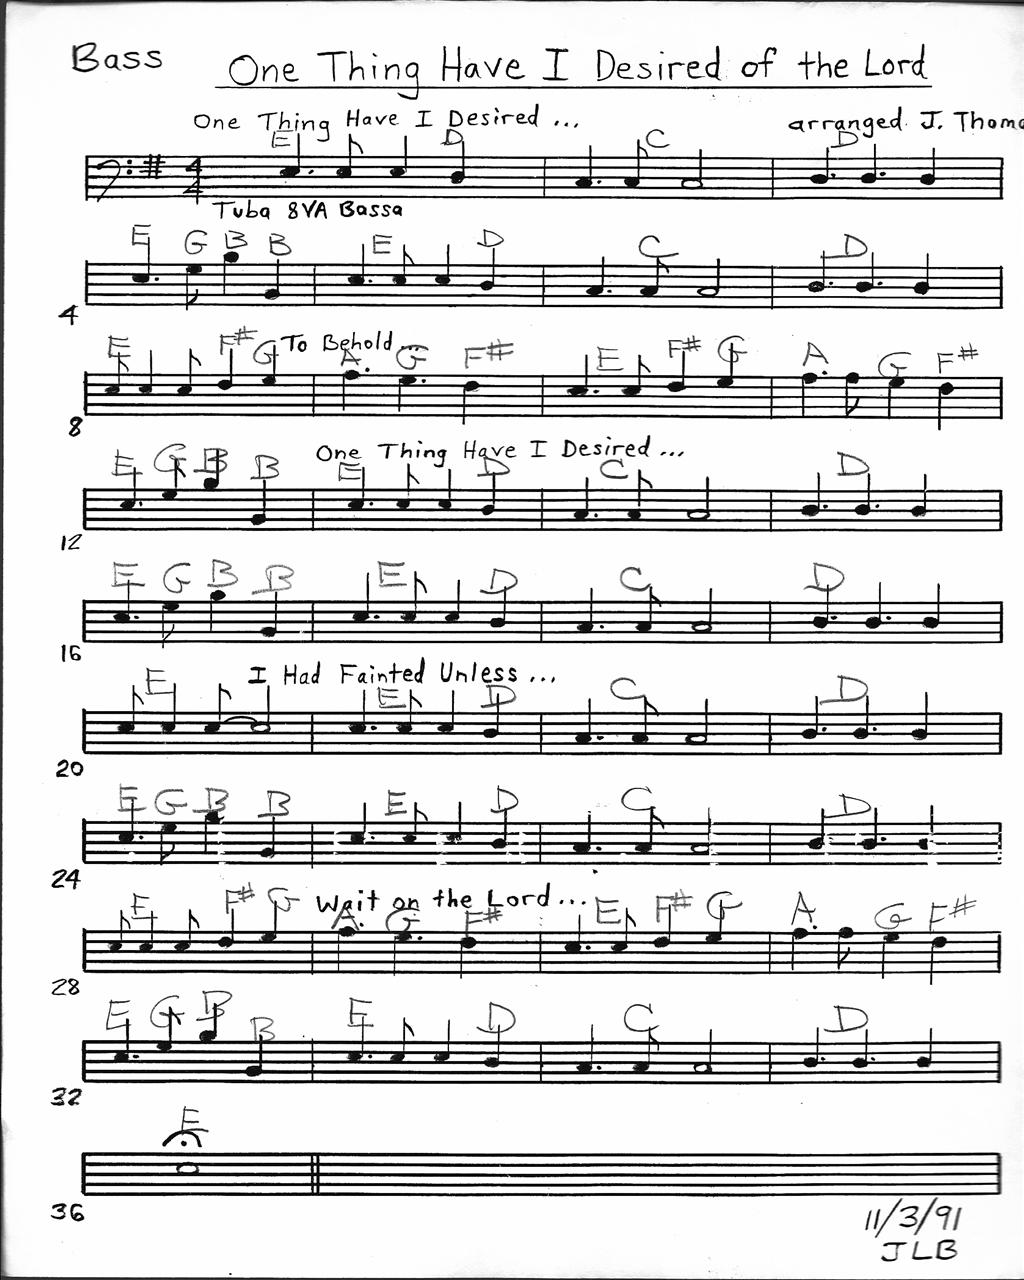 Bass One Thing Have I Desired of the Lord
One Thing Have I Desired ... arranged J. Thoma
E D C D
4 4
Tuba 8VA Bassa
E G B B E D C D
4
To Behold ...
E F# G A G F# E F# G A G F#
8
One Thing Have I Desired ...
E G B B E D C D
12
E G B B E D C D
16
I Had Fainted Unless ...
E E D C D
20
E G B B E D C D
24
Wait on the Lord ...
E F# G A G F# E F# G A G F#
28
E G B B E D C D
32
E
36
11/3/91
JLB